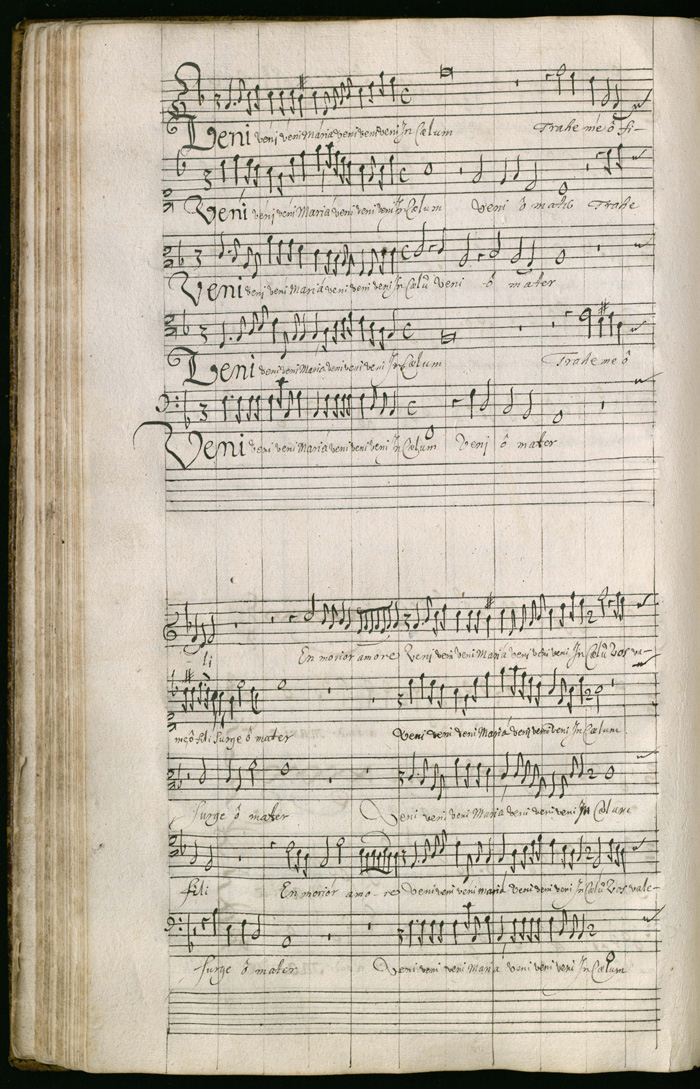 Veni veni veni Maria veni veni veni In Cælum Trahe me ô fi-
Veni veni veni Maria veni veni veni In Cælum Veni ô mater Trahe
Veni veni veni Maria veni veni veni In Cælũ Veni ô mater
Veni veni veni Maria veni veni veni In Cælum Trahe me ô
Veni veni veni Maria veni veni veni In Cælum Veni ô mater
- li En morior amore Veni veni veni Maria veni veni veni In Cælũ Vos va-
me ô fili surge ô mater Veni veni veni Maria veni veni veni In Cælum
surge ô mater Veni veni veni Maria veni veni veni In Cælum
fili En morior amo-re Veni veni veni maria veni veni veni In Cælũ Vos vale-
surge ô mater Veni veni veni Maria veni veni veni In Cælum